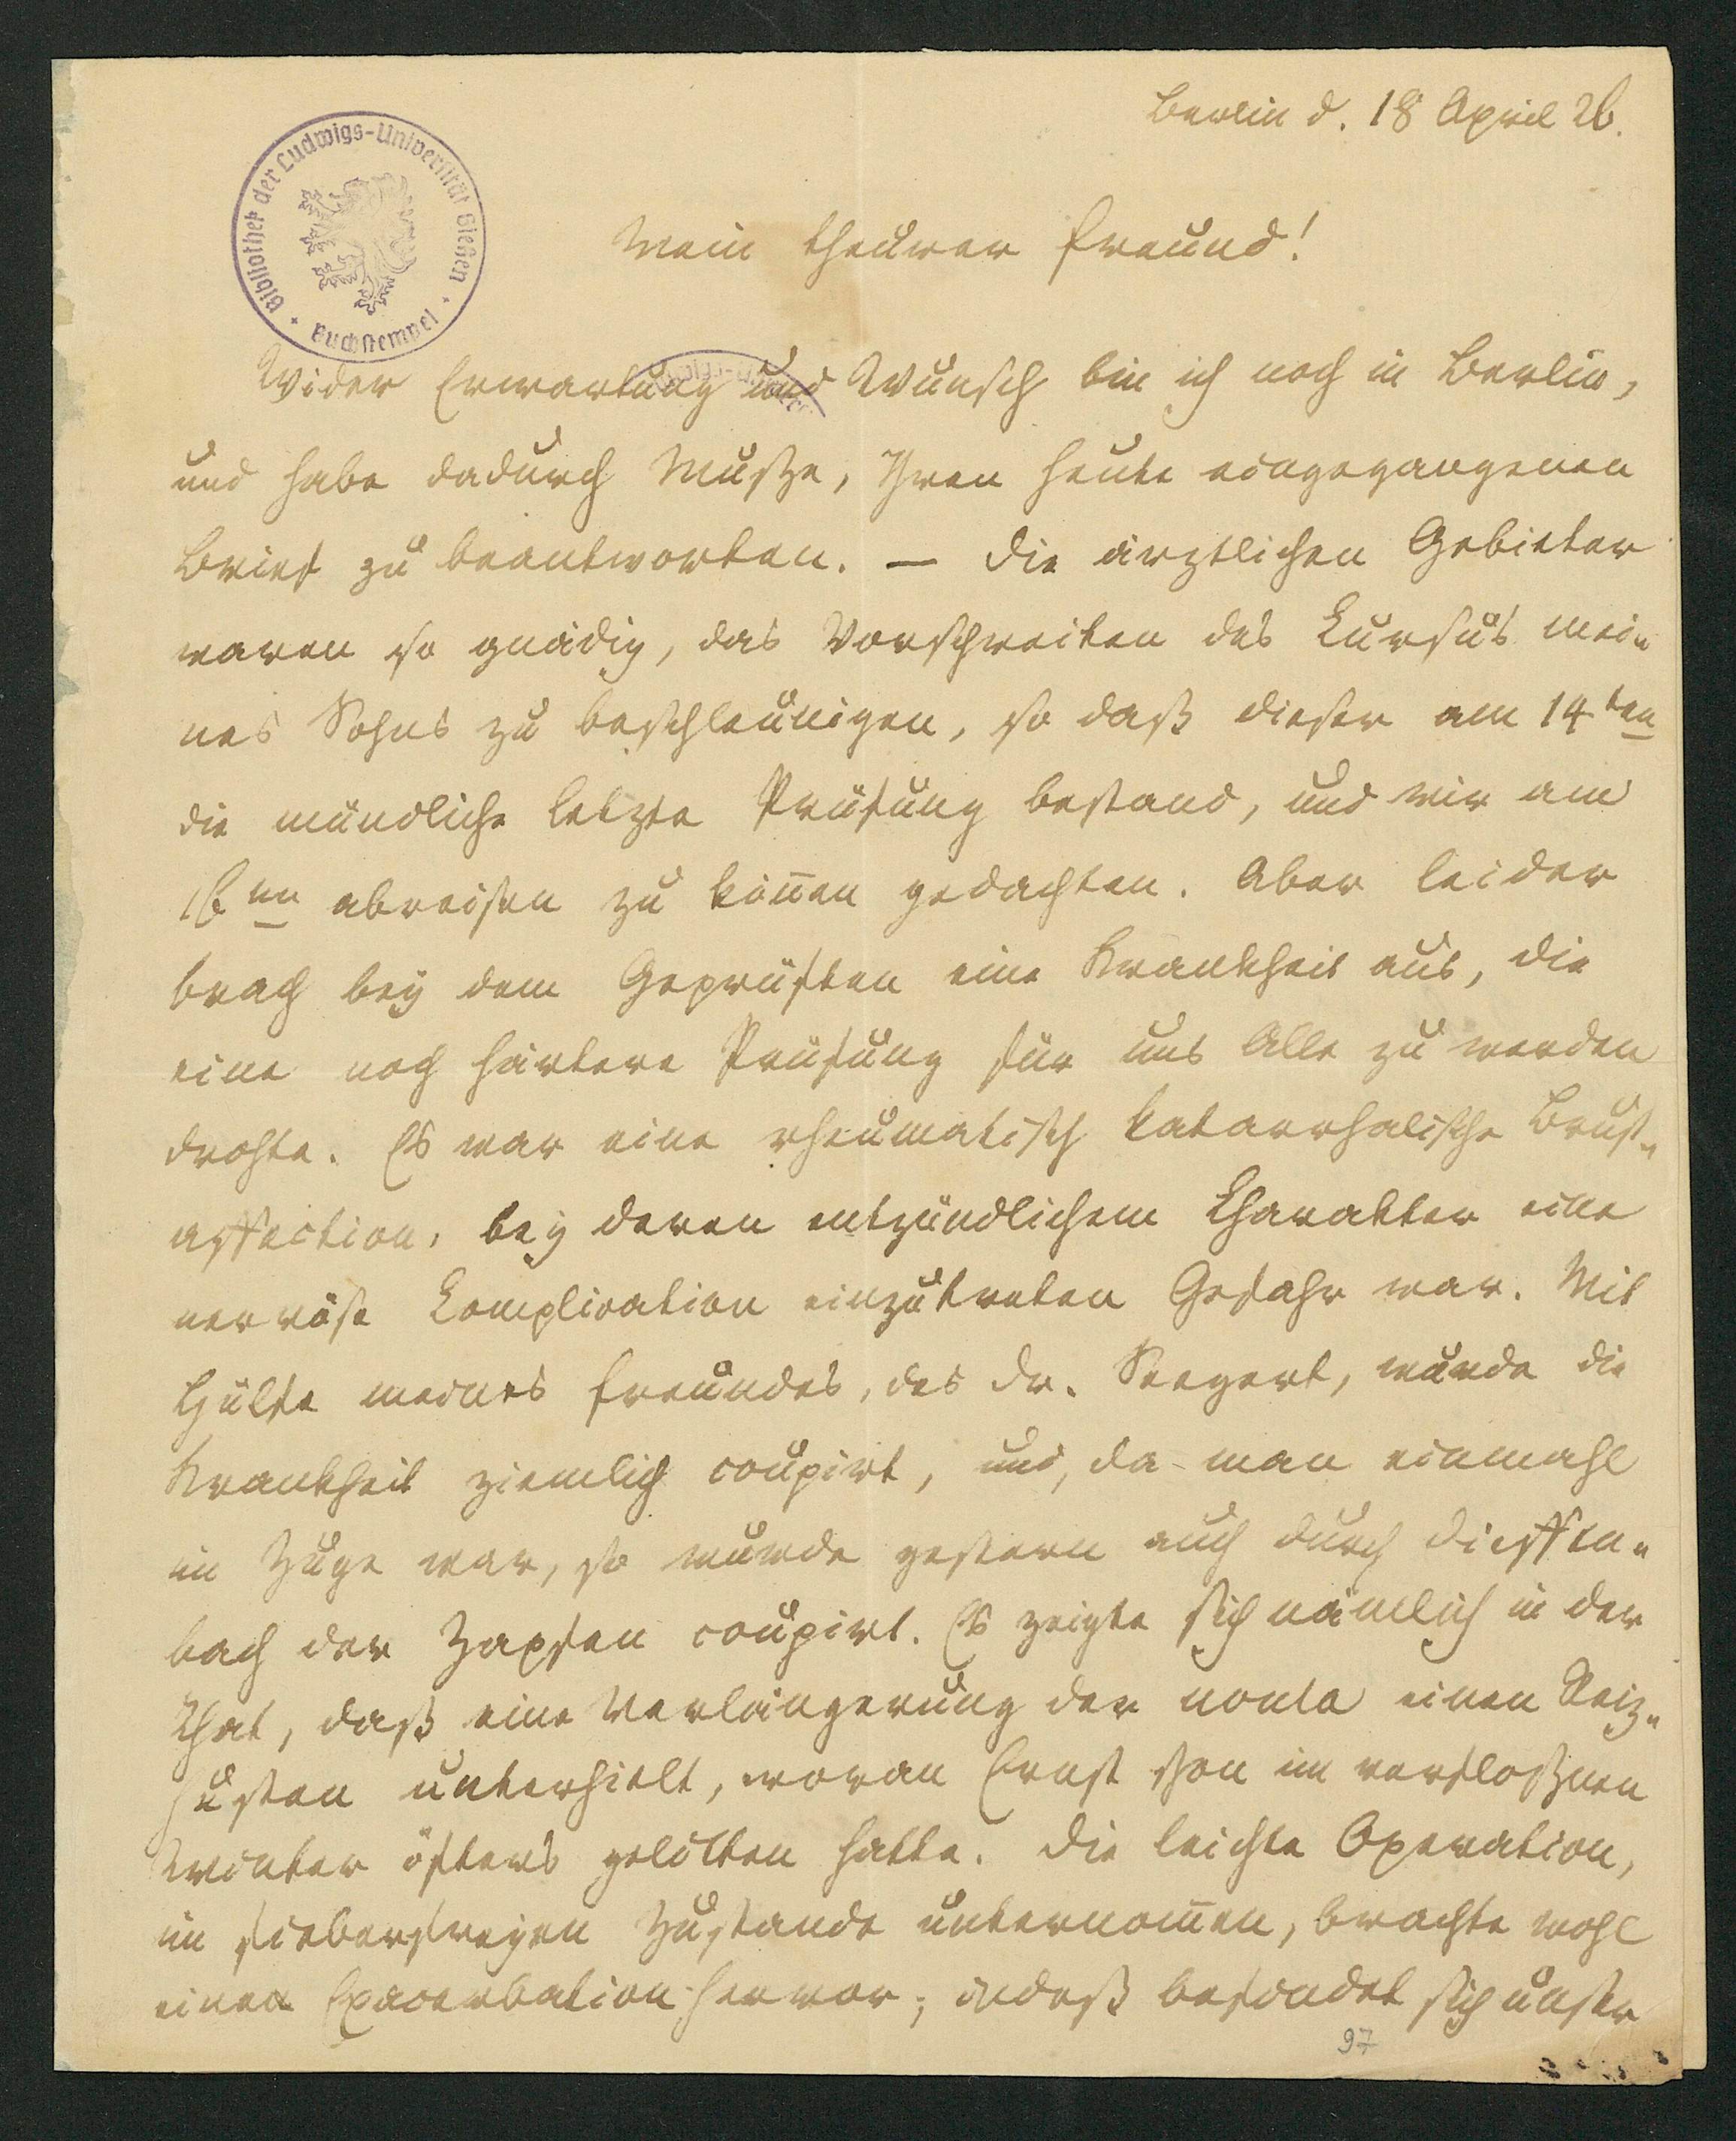 Berlin d. 18 April 26.
Bibliothek der Ludwigs-Universität Gießen
Buchstempel
Mein theurer Freund!
Wider Erwartung und Wunsch bin ich noch in Berlin,
und habe dadurch Musze, Ihren heute eingegangenen
Brief zu beantworten. — Die ärztlichen Gebieter
waren so gnädig, das Vorschreiten des Cursus mei-
nes Sohns zu beschleunigen, so daß dieser am 14ten
die mündliche letzte Prüfung bestand, und wir am
16ten abreisen zu können gedachten. Aber leider
brach bey dem Geprüften eine Krankheit aus, die
eine noch härtere Prüfung für uns Alle zu werden
drohte. Es war eine rheumatisch katarrhalische Brust-
affection, bey deren entzündlichem Charakter eine
nervöse Complication einzutreten Gefahr war. Mit
Hülfe meines Freundes, des Dr. Seegert, wurde die
Krankheit ziemlich coupirt, und, da man einmahl
im Zuge war, so wurde gestern auch durch Dieffen-
bach der Zapfen coupirt. Es zeigte sich nämlich in der
That, daß eine Verlängerung der uvula einen Reiz-
husten unterhielt, woran Ernst schon im verfloßnen
Winter öfters gelitten hatte. Die leichte Operation,
im fieberfreyen Zustande unternommen, brachte wohl
eine Exacerbation hervor; indeß befindet sich unser
97